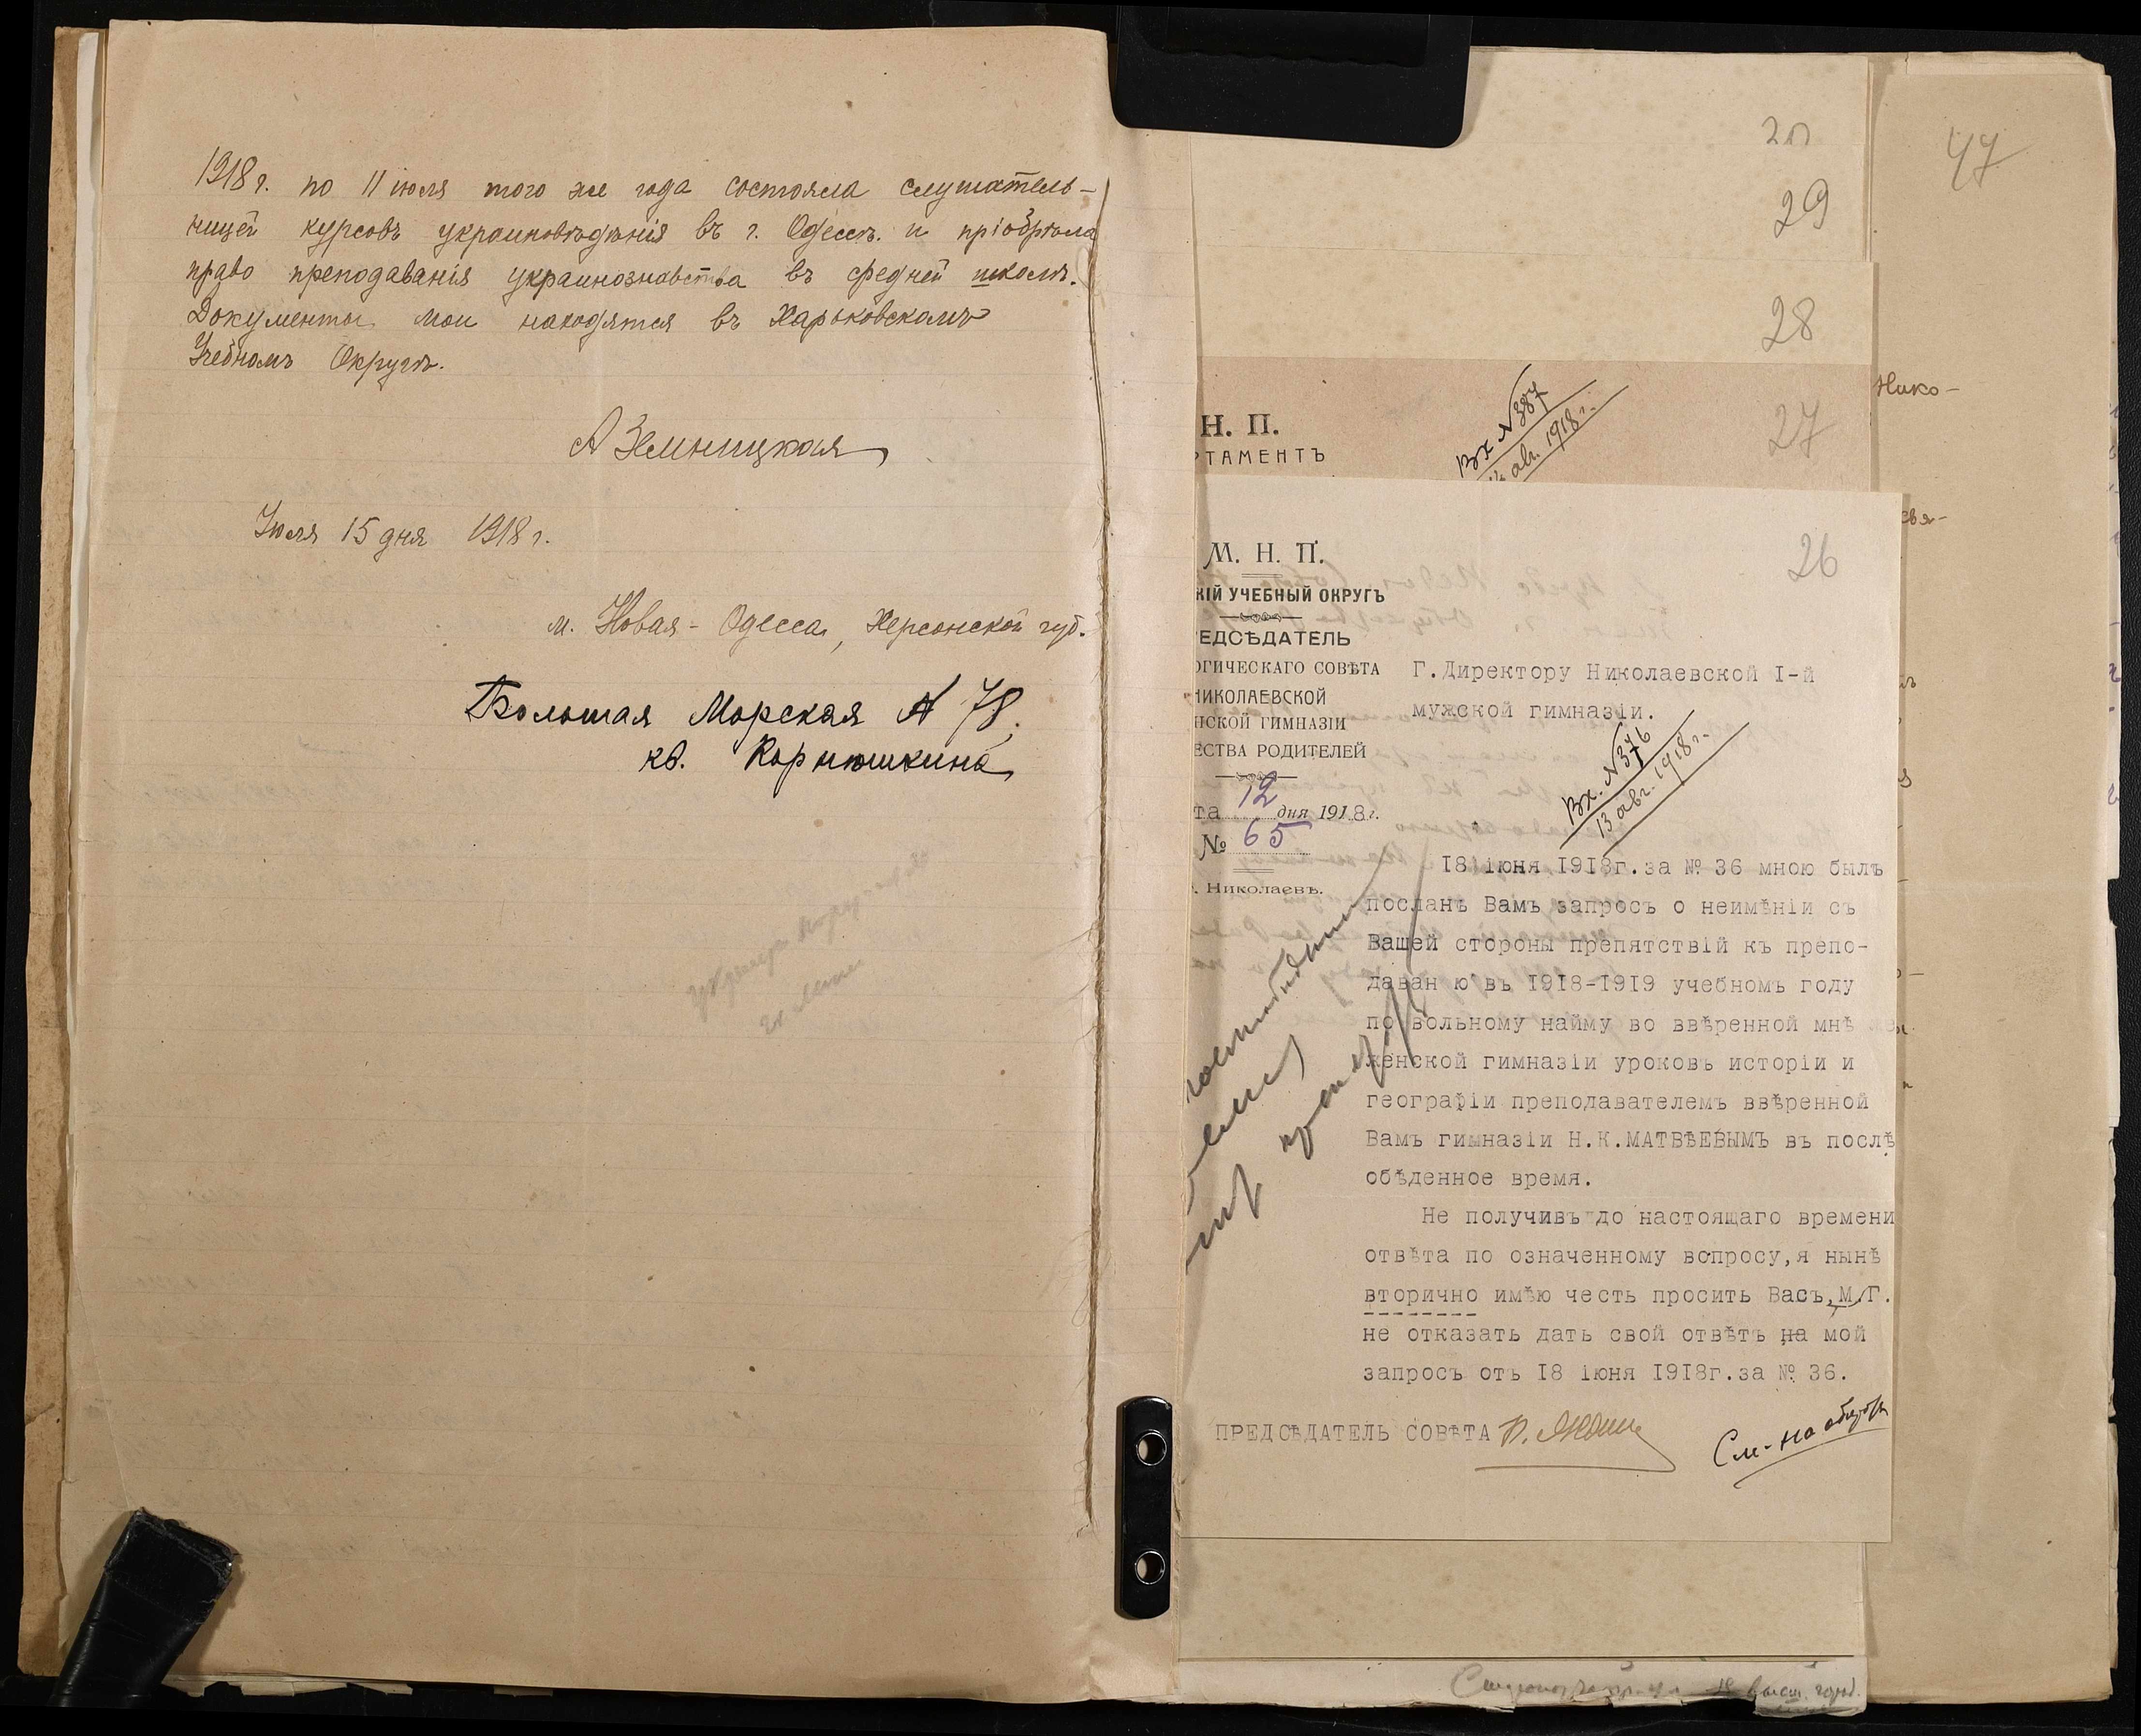 1918 г. по 11 июля того же года состояла слушатель-
ницей курсовъ украиновѣдѣнія въ г. Одессѣ. и пріобрѣла
право преподаванія украинознавства въ средней школѣ.
Документы мои находятся въ Харьковскомъ
Учебномъ Округѣ.
Июля 15 дня 1918 г.
м. Новая-Одесса, Херсонской губ.
Большая Морская № 78.
кв. Корнюшкина
29
28
47
Нико-
Н. П.
РТАМЕНТЪ
Вх № 387
авг. 1918 г.
27
26
М. Н. П.
КІЙ УЧЕБНЫЙ ОКРУГЪ
ЕДСѢДАТЕЛЬ
ОГИЧЕСКАГО СОВѢТА
НИКОЛАЕВСКОЙ
НСКОЙ ГИМНАЗІИ
ЕСТВА РОДИТЕЛЕЙ
та 12 дня 1918 г.
№ 65
. Николаевъ.
Г.Директору Николаевской I-й
мужской гимназіи.
Вх. № 376
13 авг. 1918 г.
18 іюня 1918г.за № 36 мною былъ
посланъ Вамъ запросъ о неимѣніи съ
Вашей стороны препятствій къ препо-
даван ю въ 1918-1919 учебномъ году
по вольному найму во ввѣренной мнѣ
женской гимназіи уроковъ исторіи и
географіи преподавателемъ ввѣренной
Вамъ гимназіи Н.К.МАТВѢЕВЫМЪ въ послѣ
обѣденное время.
Не получивъ до настоящаго времени
отвѣта по означенному вопросу,я нынѣ
вторично имѣю честь просить Васъ,М.Г.
не отказать дать свой отвѣтъ на мой
запросъ отъ 18 іюня 1918г.за № 36.
ПРЕДСѢДАТЕЛЬ СОВѢТА
См. на обороте